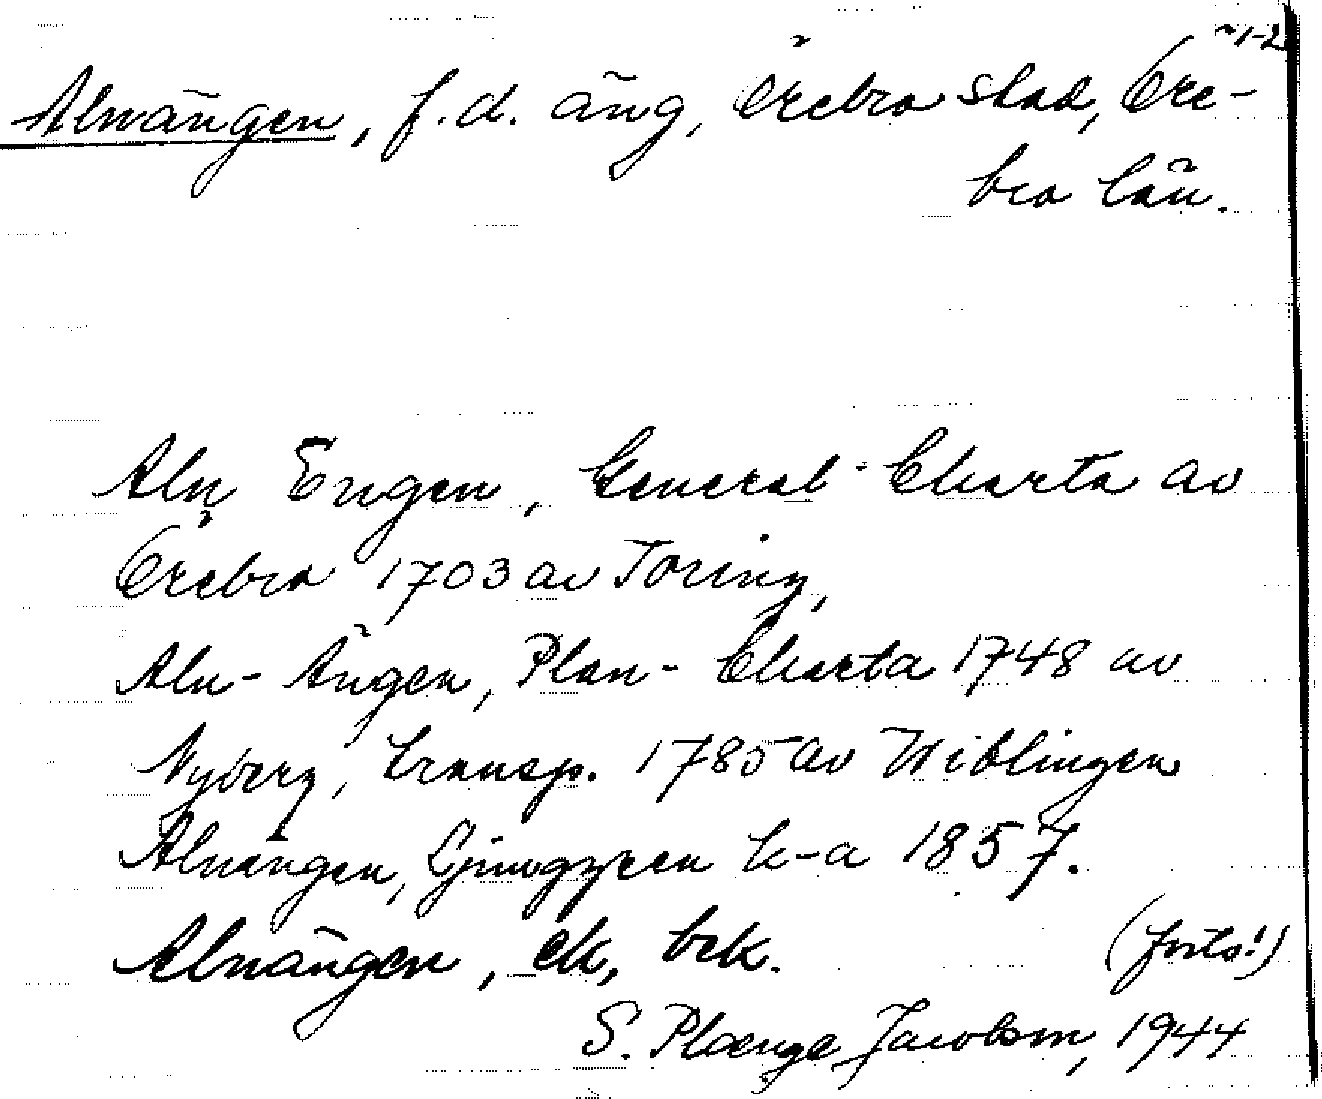 1-2
Alnängen, f.d. äng, Örebro stad, Öre-
bro län.
Aln Engen, General-Charta av
Örebro 1703 av Toring,
Aln-Ängen, Plan-Charta 1748 av
Nyberg, transp. 1785 av Wiblingen
Alnängen, Ljunggren k-a 1857.
Alnängen, ek, bek. (forts!)
S. Plænge Jacobson, 1944